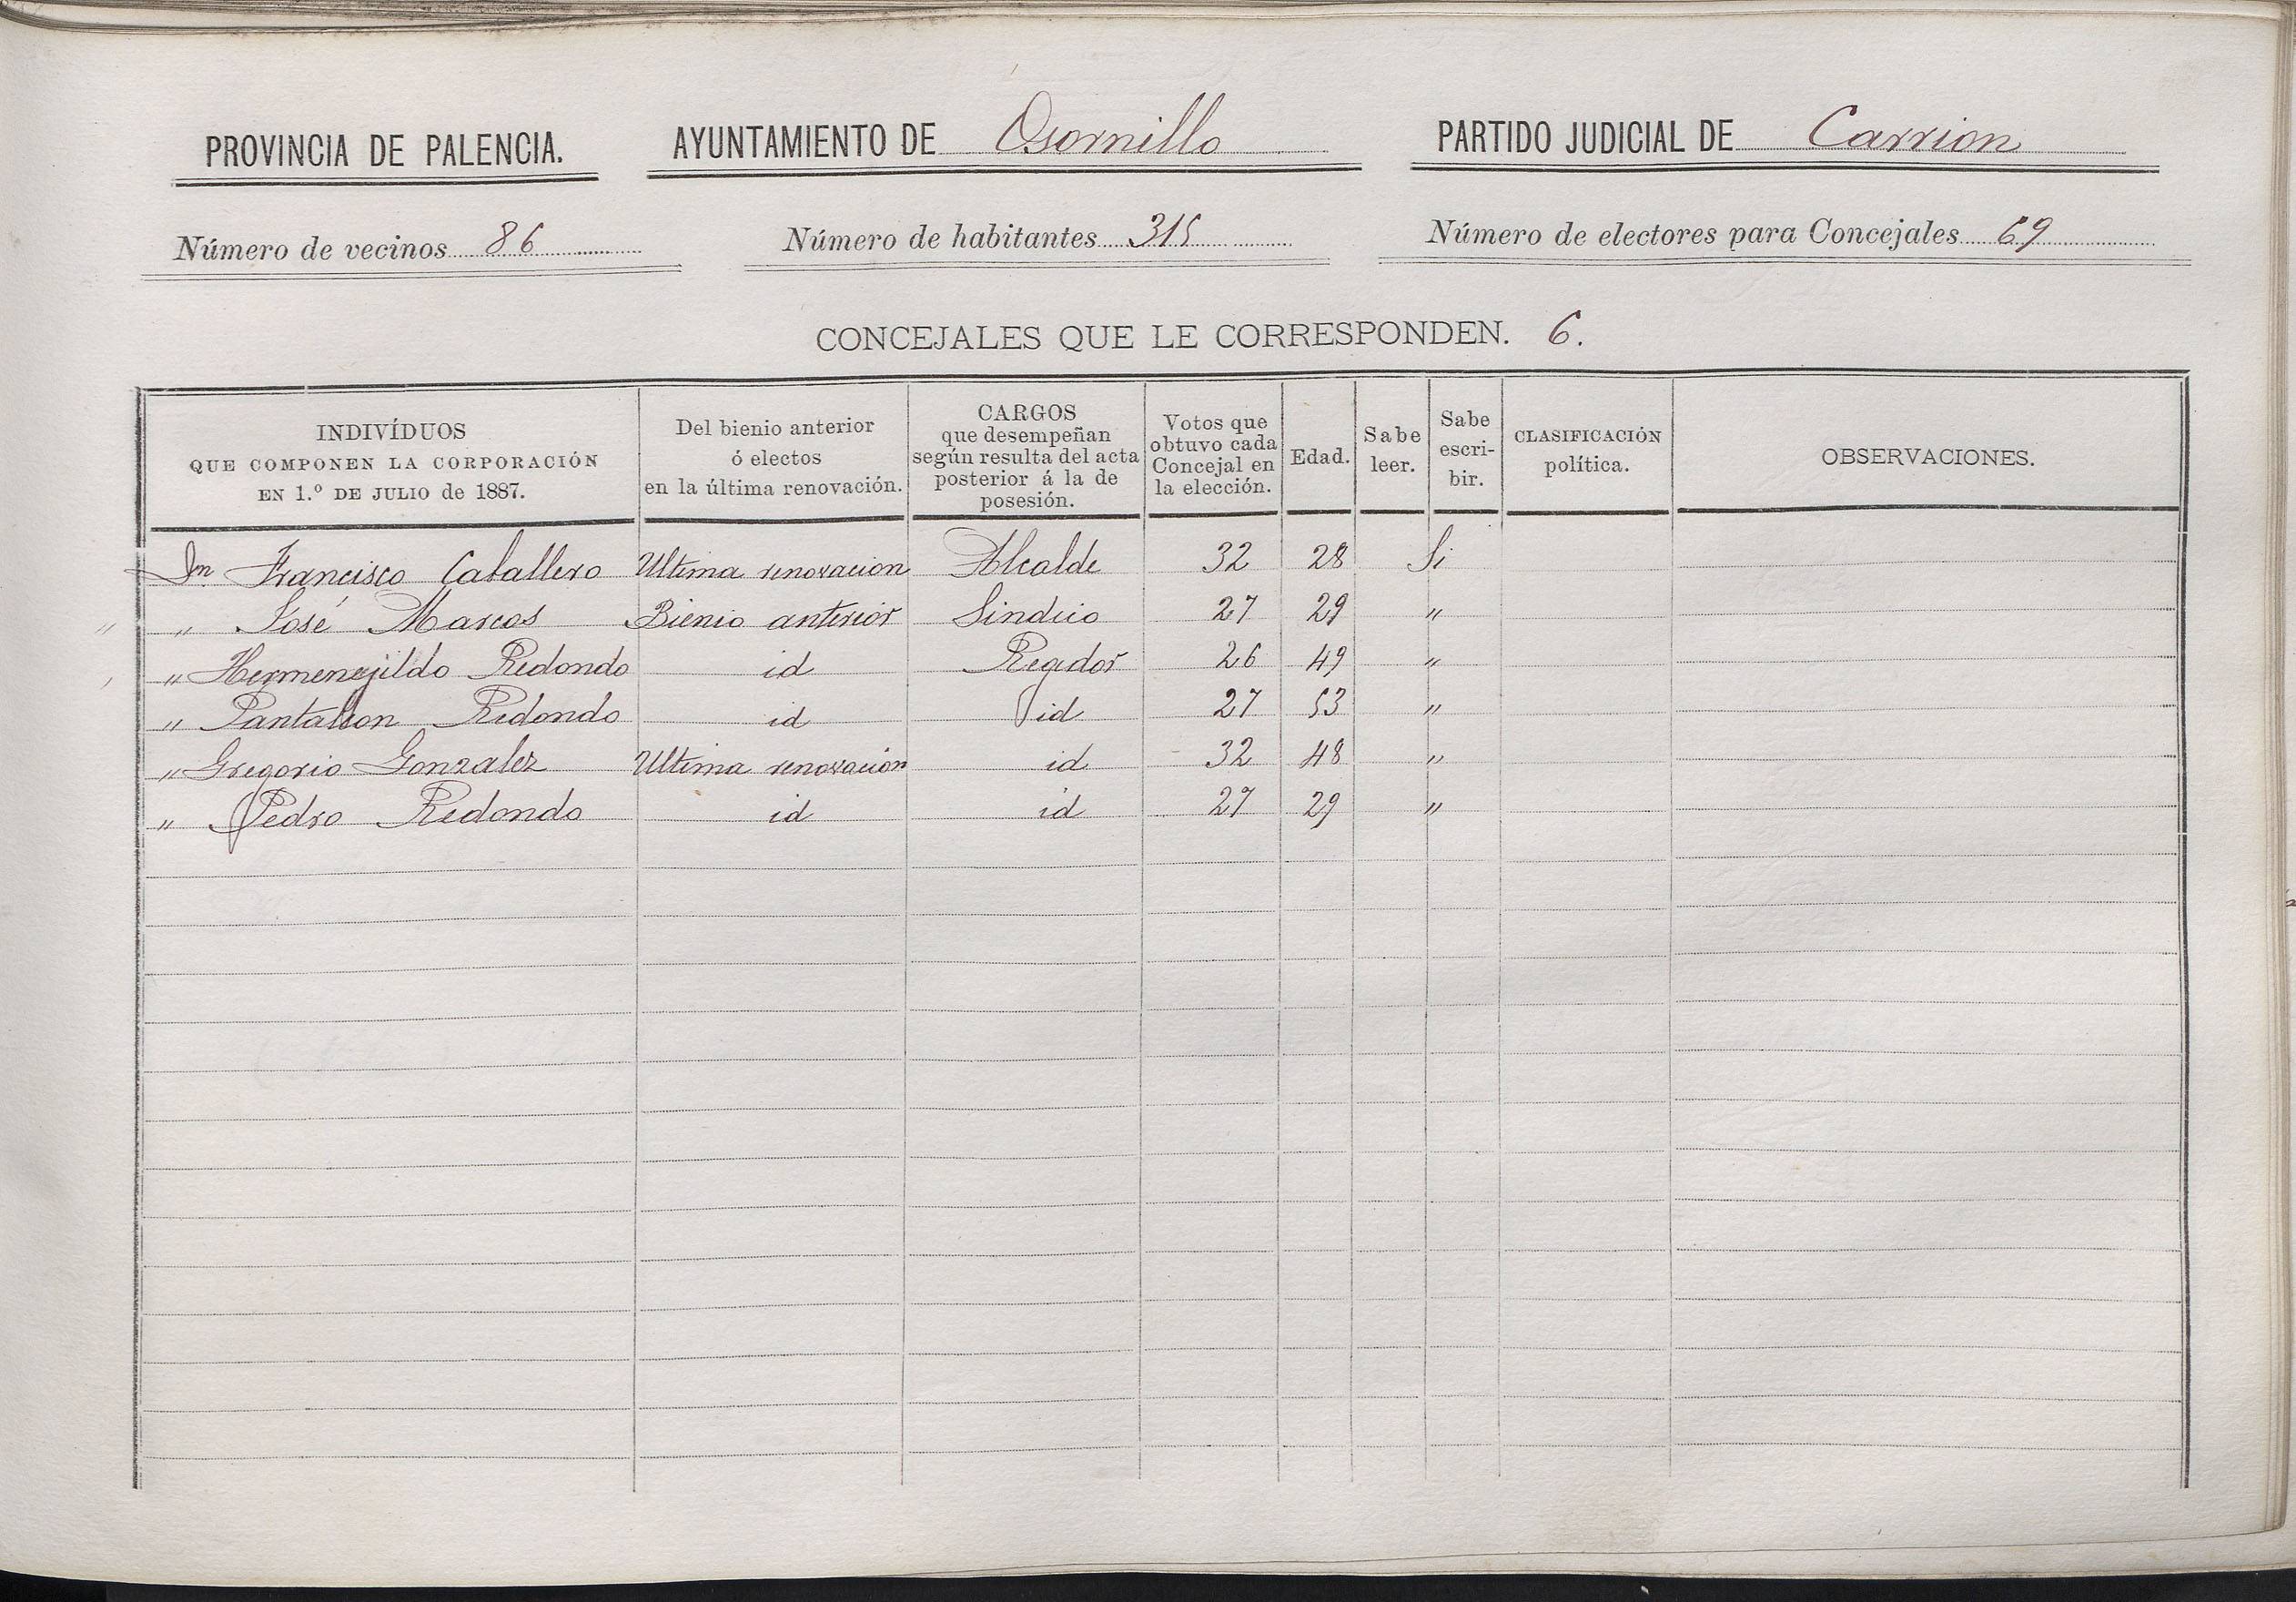 PROVINCIA DE PALENCIA. AYUNTAMIENTO DE Osornillo PARTIDO JUDICIAL DE Carrion
Número de vecinos 86 Número de habitantes 315 Número de electores para Concejales 69
CONCEJALES QUE LE CORRESPONDEN. 6.
INDIVÍDUOS
QUE COMPONEN LA CORPORACIÓN
EN 1.º DE JULIO de 1887.
Del bienio anterior
ó electos
en la última renovación.
CARGOS
que desempeñan
según resulta del acta
posterior á la de
posesión.
Votos que
obtuvo cada
Concejal en
la elección.
Edad.
Sabe
leer.
Sabe
escri-
bir.
CLASIFICACIÓN
política.
OBSERVACIONES.
Dn Francisco Caballero Ultima renovacion Alcalde 32 28 Si
" José Marcos Bienio anterior Sindico 27 29 "
" Hermenejildo Redondo id Regidor 26 49 "
" Pantaleon Redondo id id 27 53 "
" Gregorio Gonzalez Ultima renovacion id 32 48 "
" Pedro Redondo id id 27 29 "